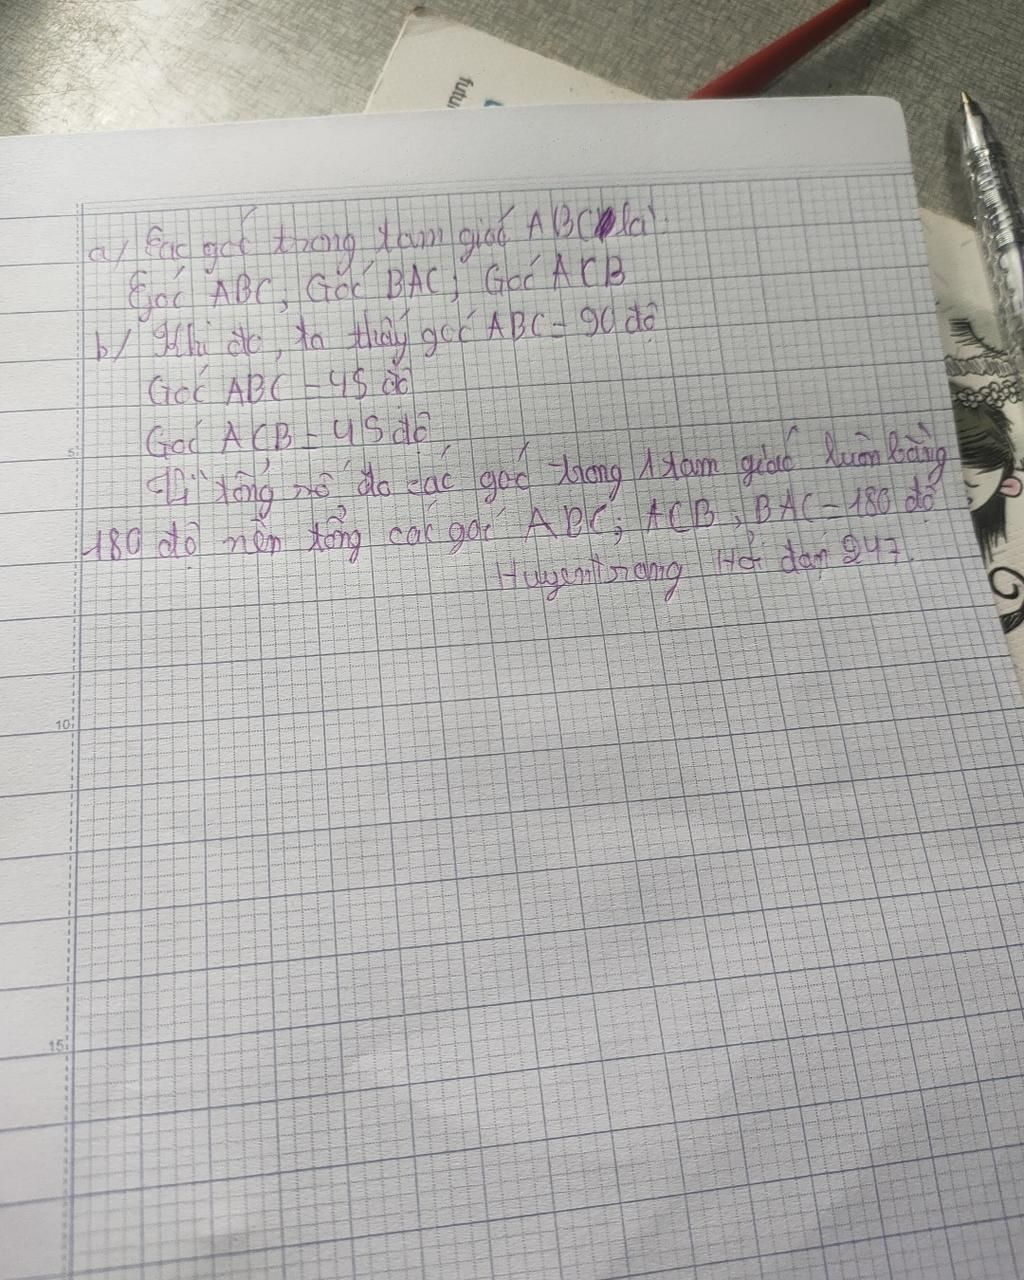 futu
a) Các góc trong tam giác ABC là:
Góc ABC, Góc BAC; Góc ACB
b) Khi đo, ta thấy góc ABC = 90 độ
Góc ABC = 45 độ
Góc ACB = 45 độ
Vì tổng số đo các góc trong 1 tam giác luôn bằng
180 độ nên tổng các góc ABC; ACB, BAC = 180 độ
Huyentrang Hỏi đáp 247.
5
10
15